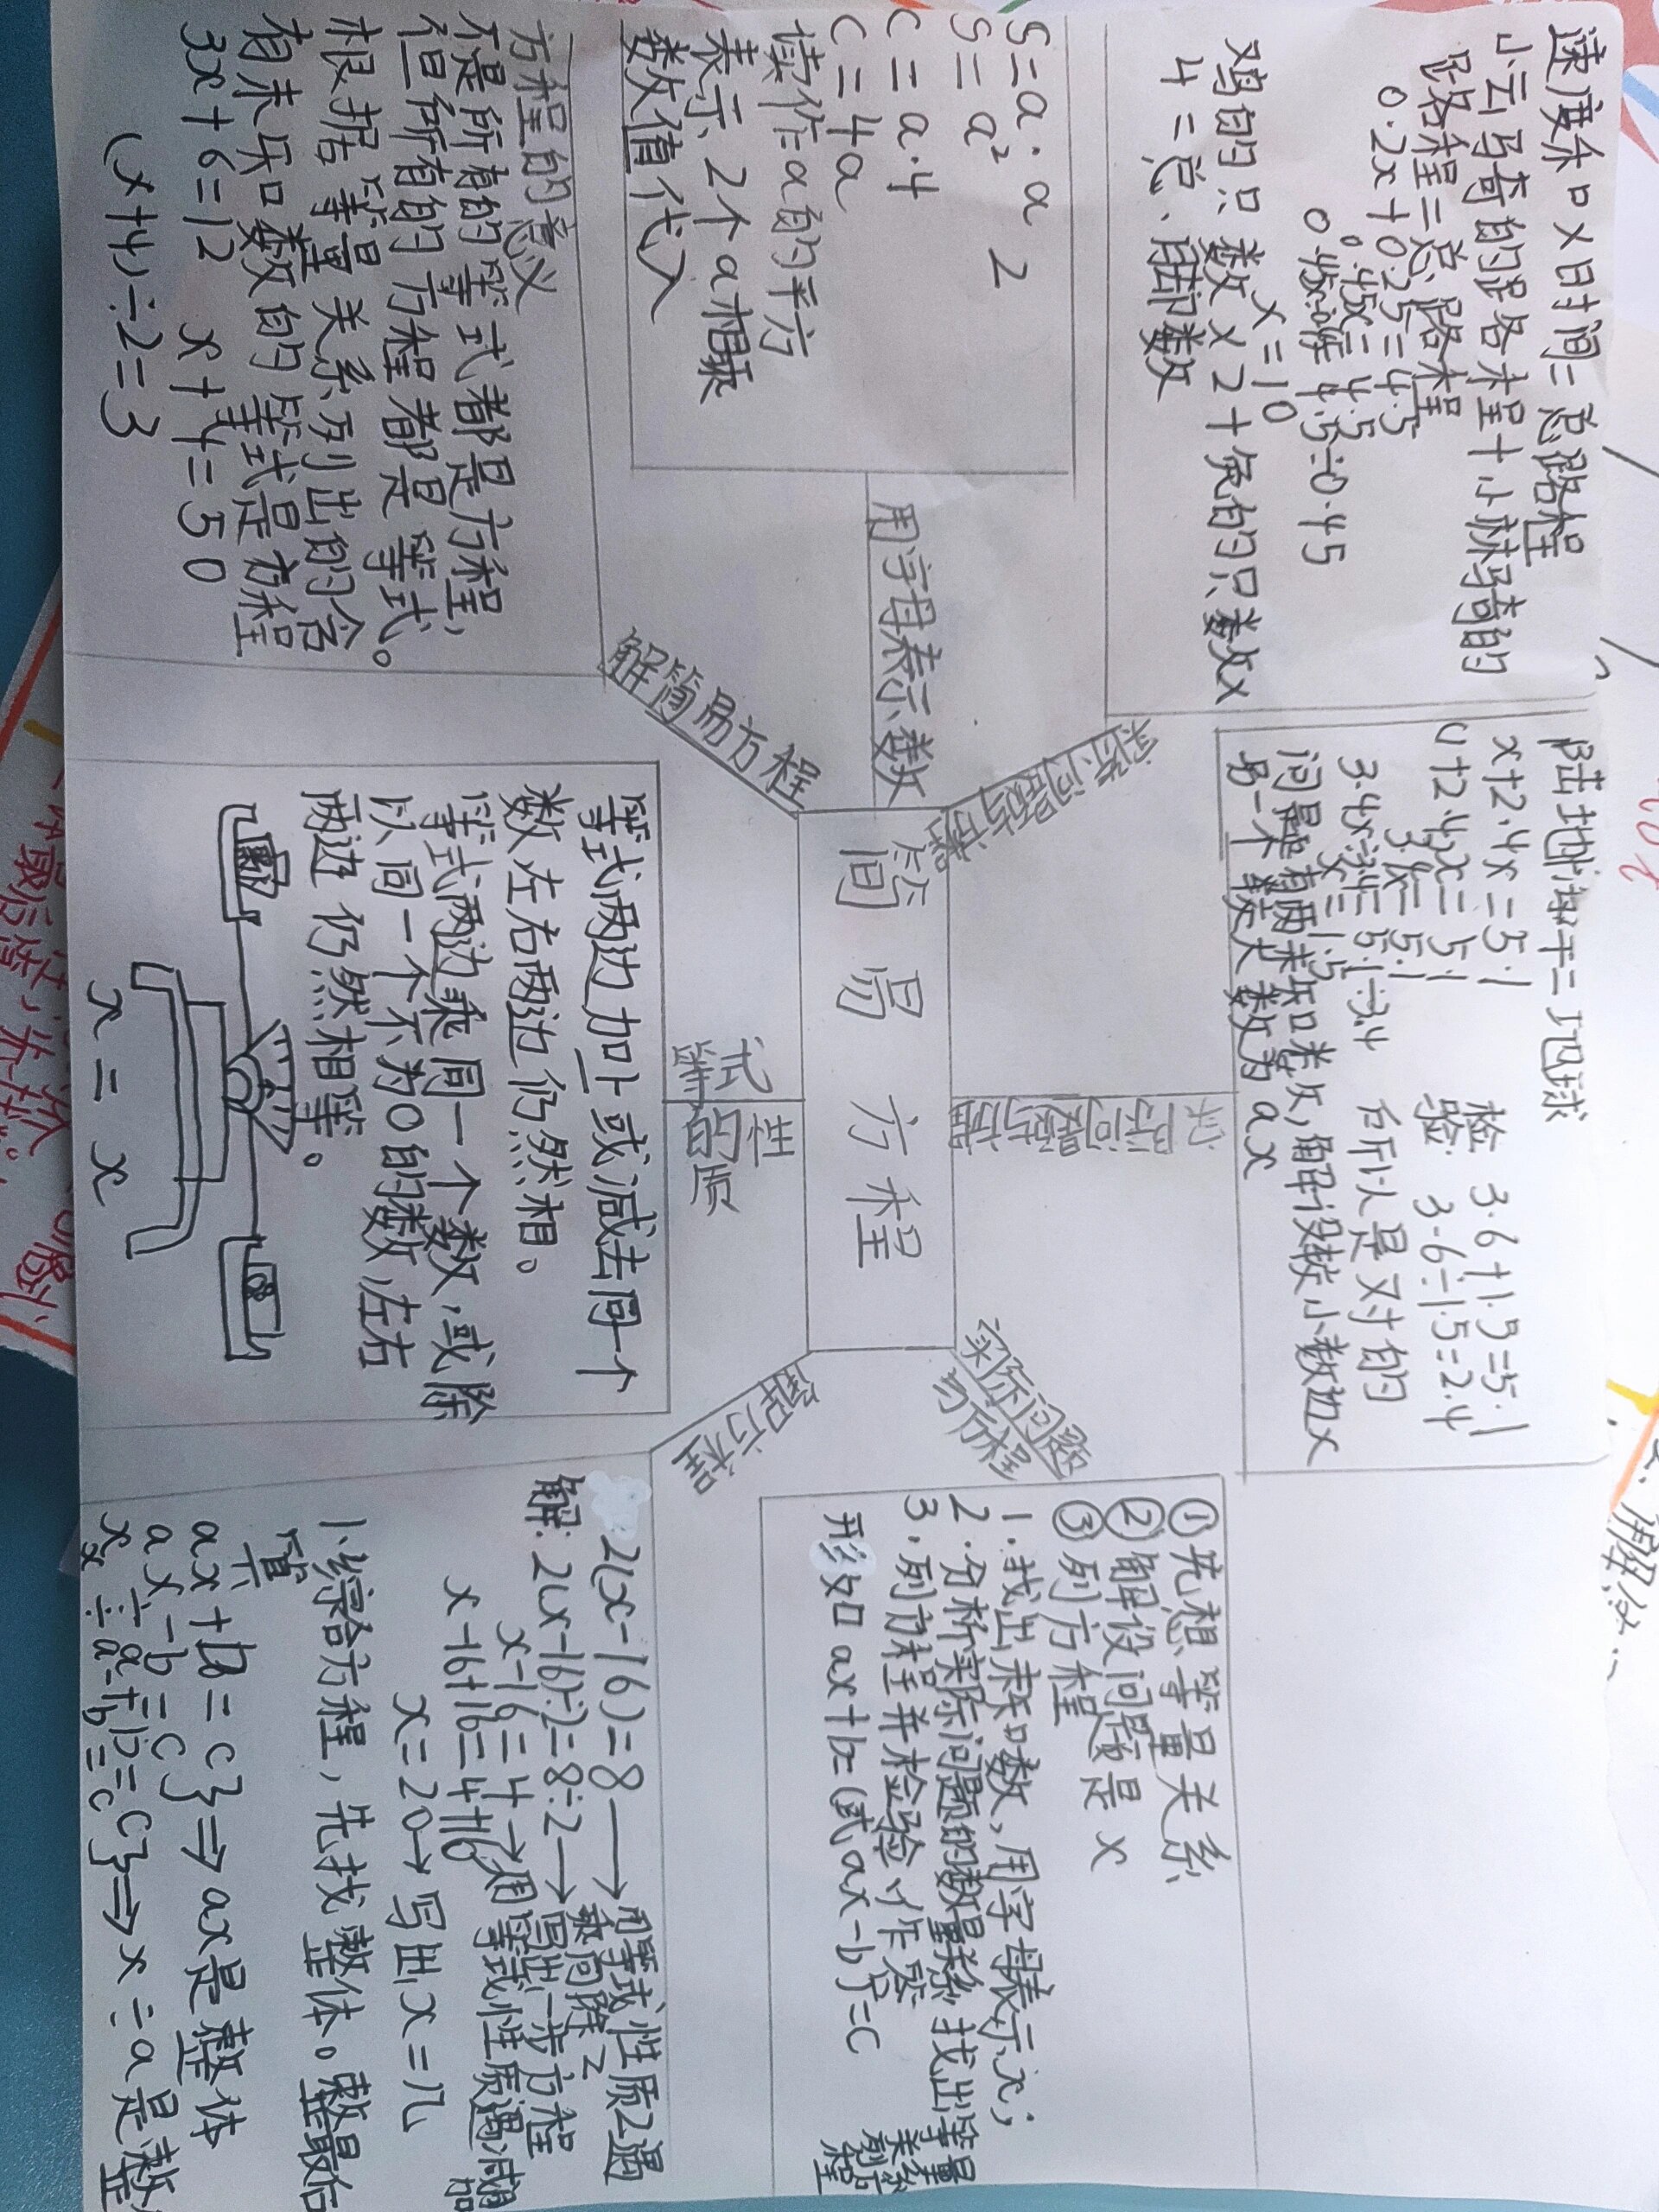 速度和×时间=总路程
小云骑的路程+小林骑的
路程=总路程
0.2x+0.25=4.5
0.45x=4.5
0.45x÷0.45=4.5÷0.45
x=10
鸡的只数×2+兔的只数×
4=总脚数
陆地+海洋=地球
x+2.4x=5.1
3.4x=5.1
3.4x÷3.4=5.1÷3.4
x=1.5
问题有两未知数,解设较小数为x
另一个较大数为ax
检验
3.6+1.5=5.1
3.6÷1.5=2.4
所以是对的
S=a·a
S=a²
C=a·4
C=4a
读作:a的平方
表示2个a相乘
数值代入
2
用字母表示数
实际问题与方程
实际问题与方程
实际问题
与方程
简易方程
解简易方程
等式
的性
质
解方程
①先想等量关系
②解设问题是x
③列方程
1.找出未知数,用字母表示x;
2.分析实际问题的数量关系,找出等量
关系列方程
3.列方程并检验作答
形如ax+b=(或ax-b)=c
方程的意义
不是所有的等式都是方程,
但所有的方程都是等式。
根据等量关系列出的含
有未知数的等式是方程
3x+6=12 x+4=50
(x+4)÷2=3
等式两边加上或减去同一个
数左右两边仍然相。
等式两边乘同一个数,或除
以同一个不为0的数,左右
两边仍然相等。
x=x
2(x-16)=8→用等式性质2遇
乘同除2
解:2(x-16)÷2=8÷2→写出一步方程
x-16=4→用等式性质遇减
加
x-16+16=4+16
x=20→写出x=几
1.综合方程,先找整体。整最后
算
ax+b=c}⇒ax是整体
ax-b=c
x÷a+b=c}⇒x÷a是整
x÷a-b=c